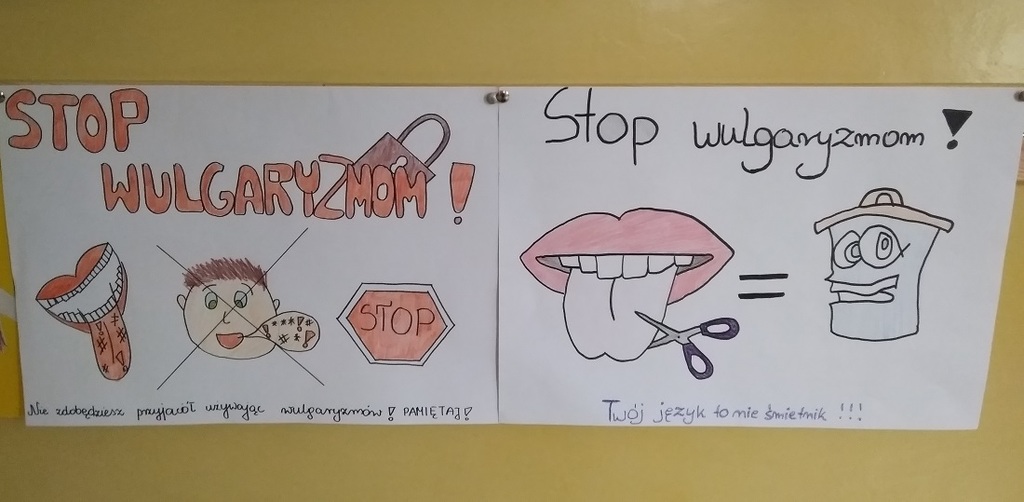 STOP
WULGARYZMOM!
***!#
#*!
STOP
Nie zdobędziesz przyjaciół używając wulgaryzmów! PAMIĘTAJ!
Stop wulgaryzmom!
=
Twój język to nie śmietnik!!!